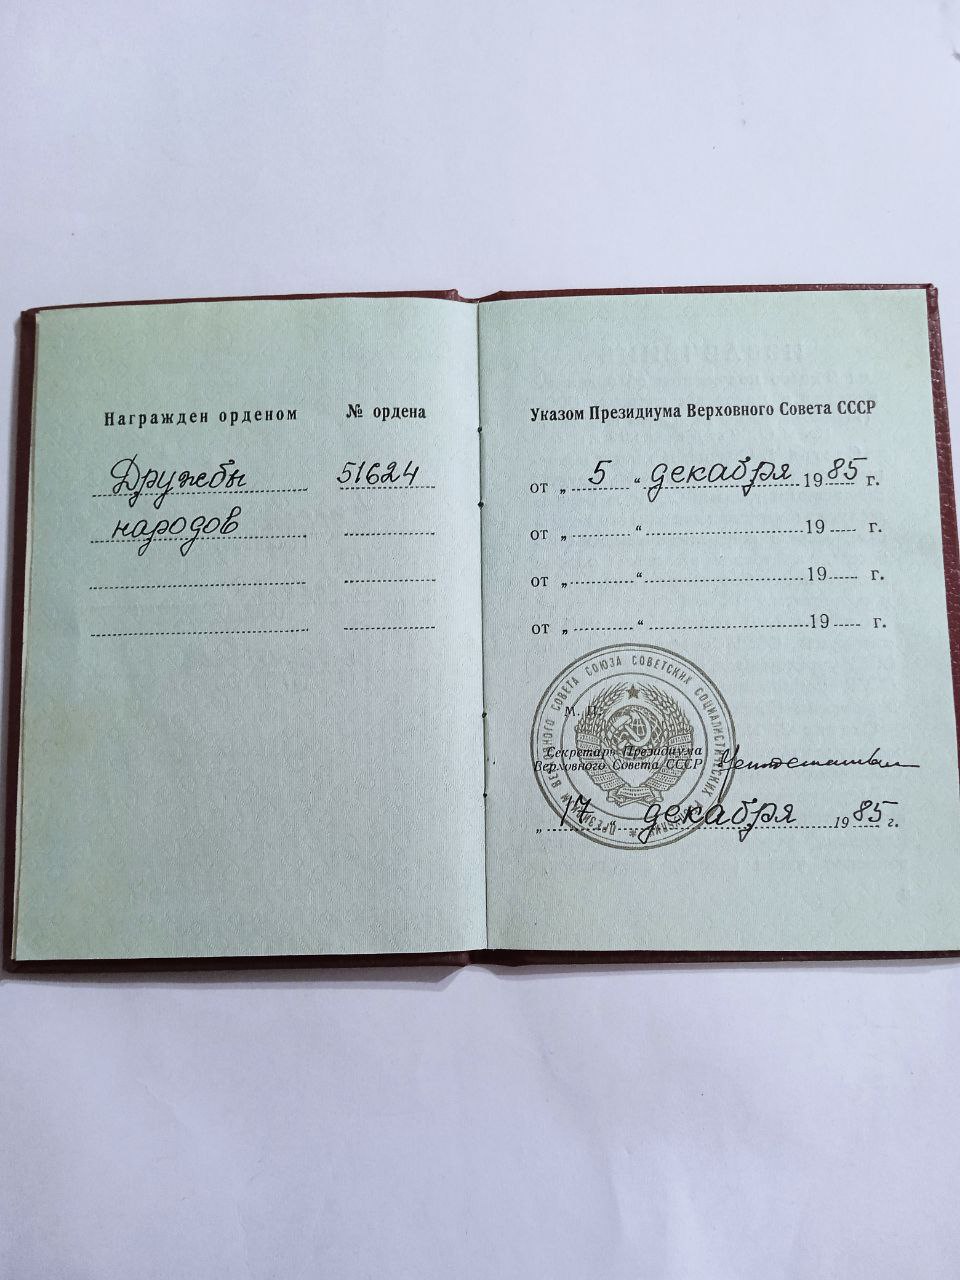 Награжден орденом № ордена
Дружбы 51624
народов
Указом Президиума Верховного Совета СССР
от „ 5 “ декабря 1985 г.
от „ “ 19 г.
от „ “ 19 г.
от „ “ 19 г.
ПРЕЗИДИУМ ВЕРХОВНОГО СОВЕТА СОЮЗА СОВЕТСКИХ СОЦИАЛИСТИЧЕСКИХ РЕСПУБЛИК
М. П.
Секретарь Президиума
Верховного Совета СССР
„ 17 “ декабря 1985 г.